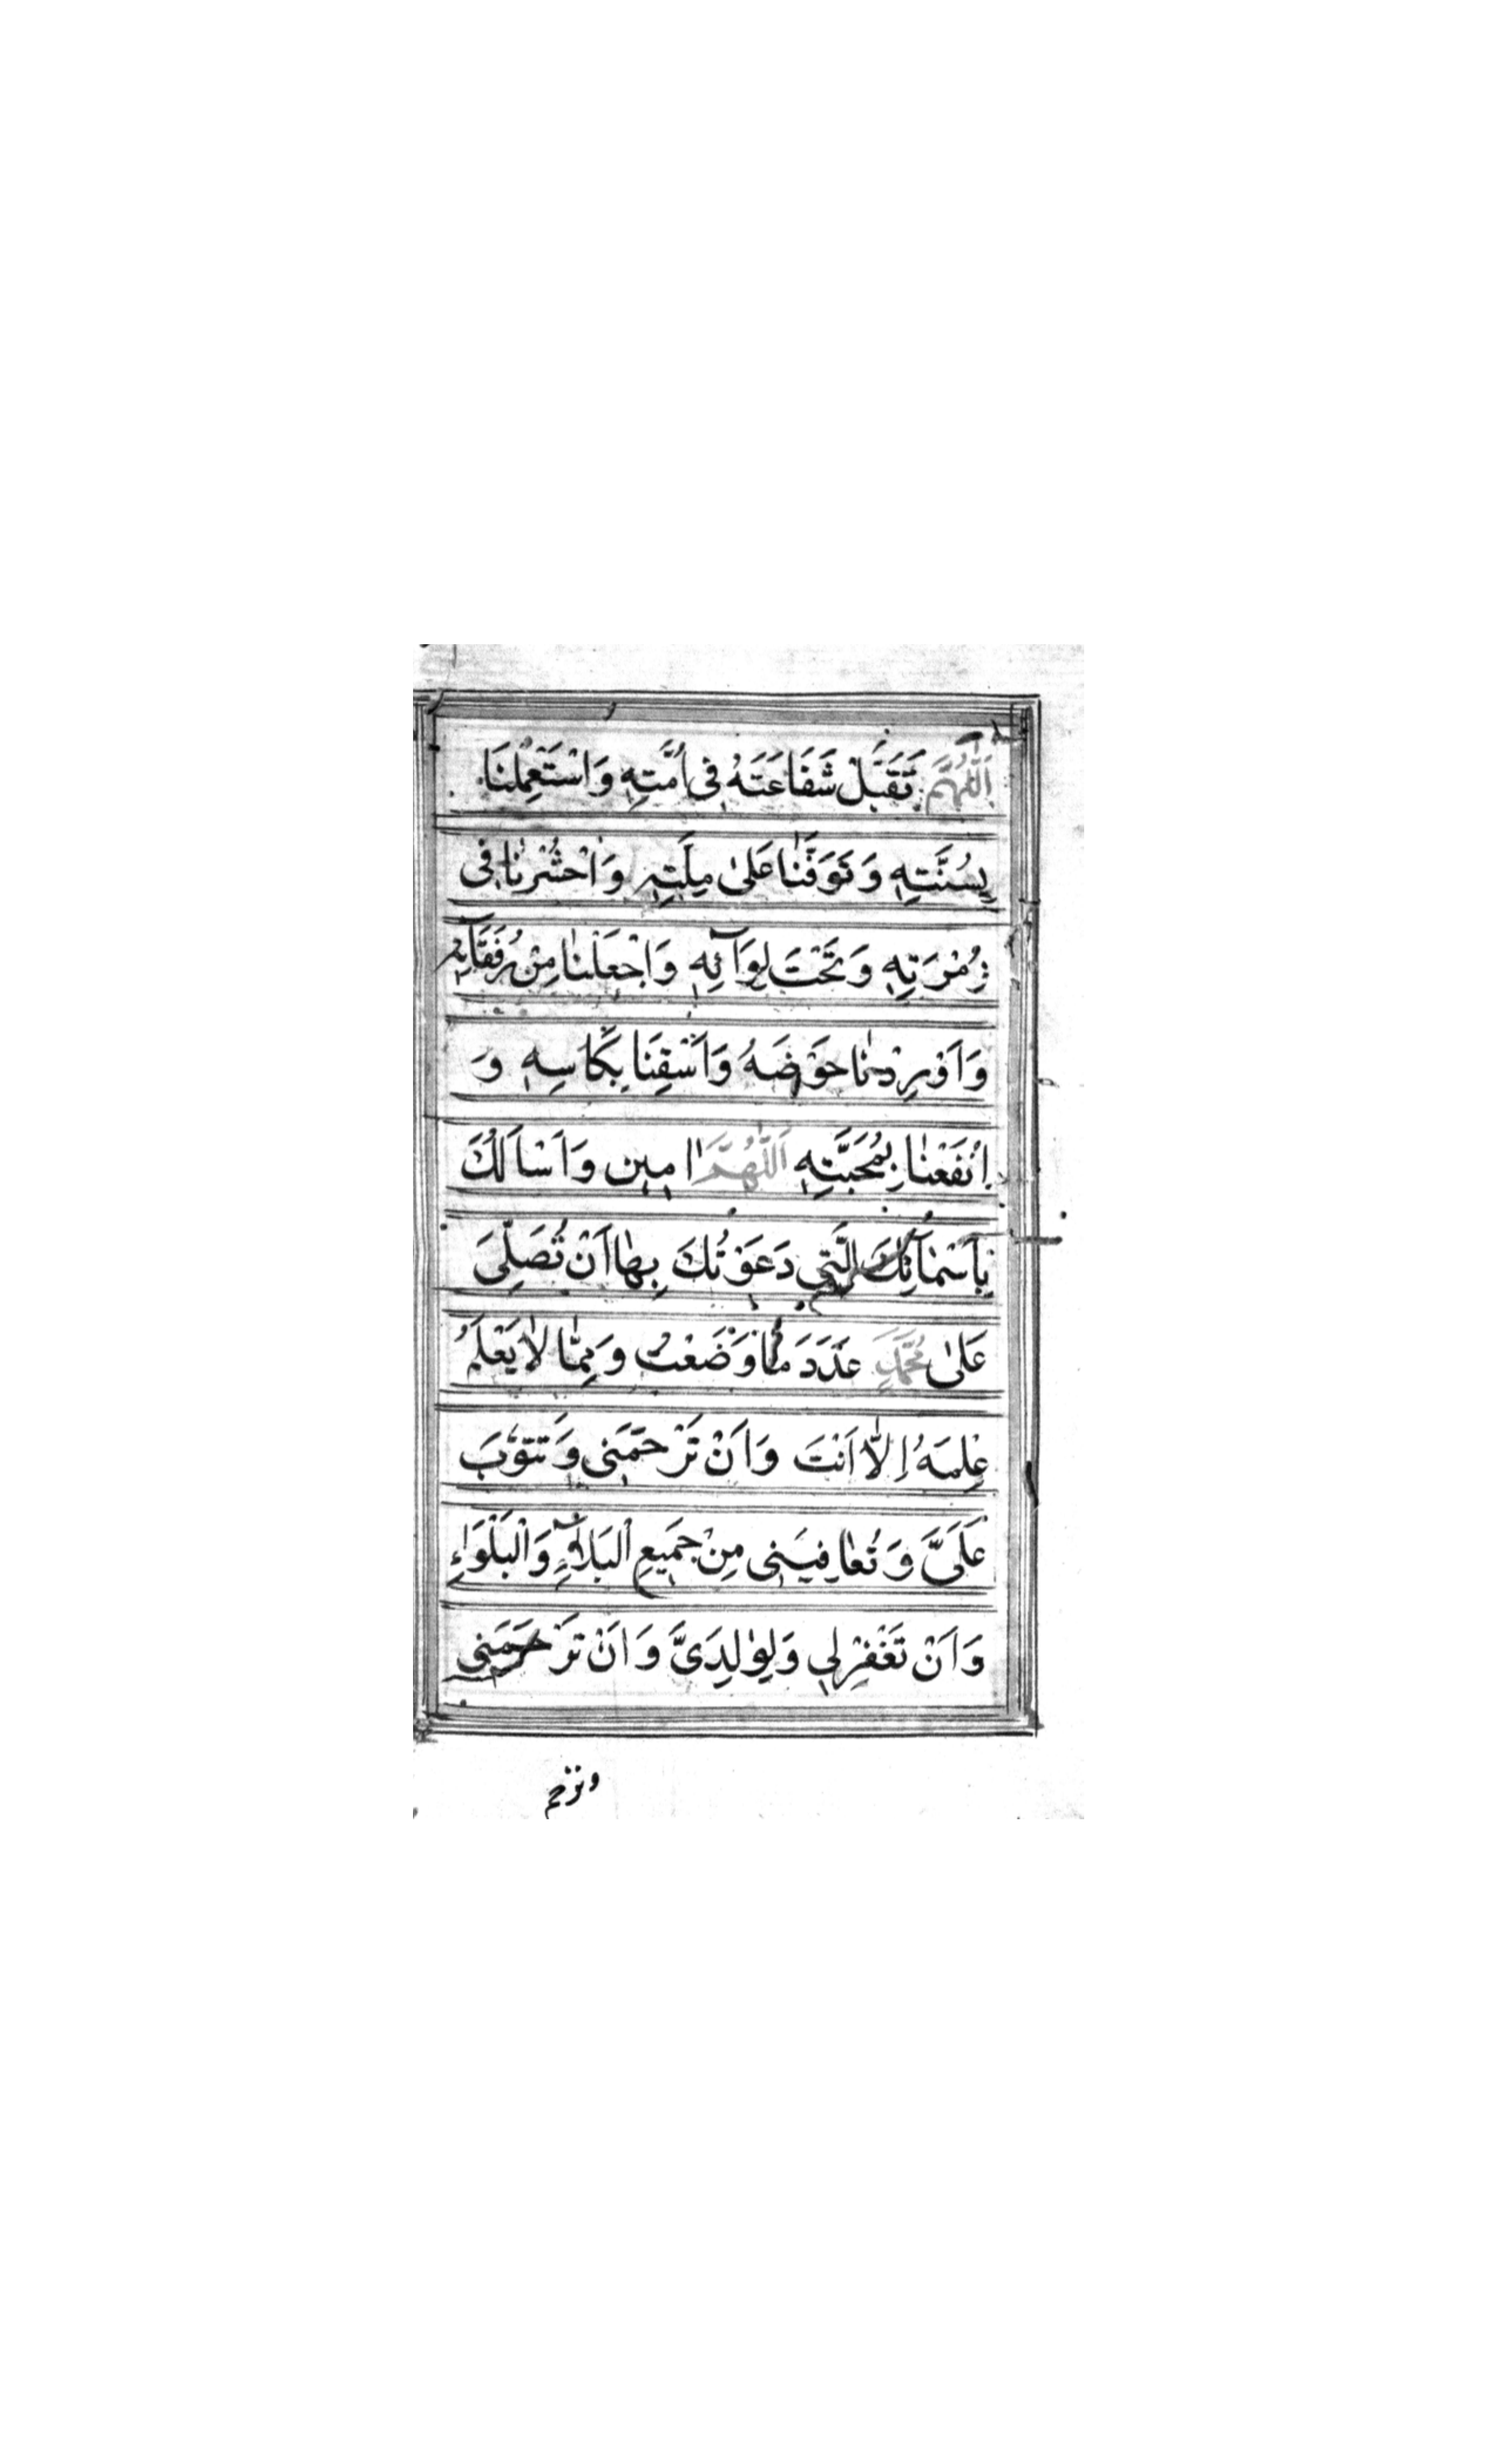 اَللّٰهُمَّ تَقَبَّلْ شَفَاعَتَهُ فِى اُمَّتِهِ وَاسْتَعْمِلْنَا
بِسُنَّتِهِ وَتَوَفَّنَا عَلىٰ مِلَّتِهِ وَاحْشُرْنَا فِى
زُمْرَتِهِ وَتَحْتَ لِوَآئِهِ وَاجْعَلْنَا مِنْ رُفَقَآئِهِ
وَاَوْرِدْنَا حَوْضَهُ وَاَسْقِنَا بِكَاْسِهِ وَ
انْفَعْنَا بِمُحَبَّتِهِ اَللّٰهُمَّ اٰمِين وَاَسْاَلُكَ
بِاَسْمَآئِكَ الَّتِى دَعَوْتُكَ بِهَا اَنْ تُصَلِّىَ
عَلىٰ مُحَمَّدٍ عَدَدَ مَا وَضَعْتُ وَمِمَّا لَا يَعْلَمُ
عِلْمَهُ اِلَّا اَنْتَ وَاَنْ تَرْحَمَنِى وَتَتُوْبَ
عَلَىَّ وَتُعَافِيَنِى مِنْ جَمِيعِ الْبَلَآءِ وَالْبَلْوَاءِ
وَاَنْ تَغْفِرْ لِى وَلِوٰلِدَىَّ وَاَنْ تَرْحَمَنِى
وترحم